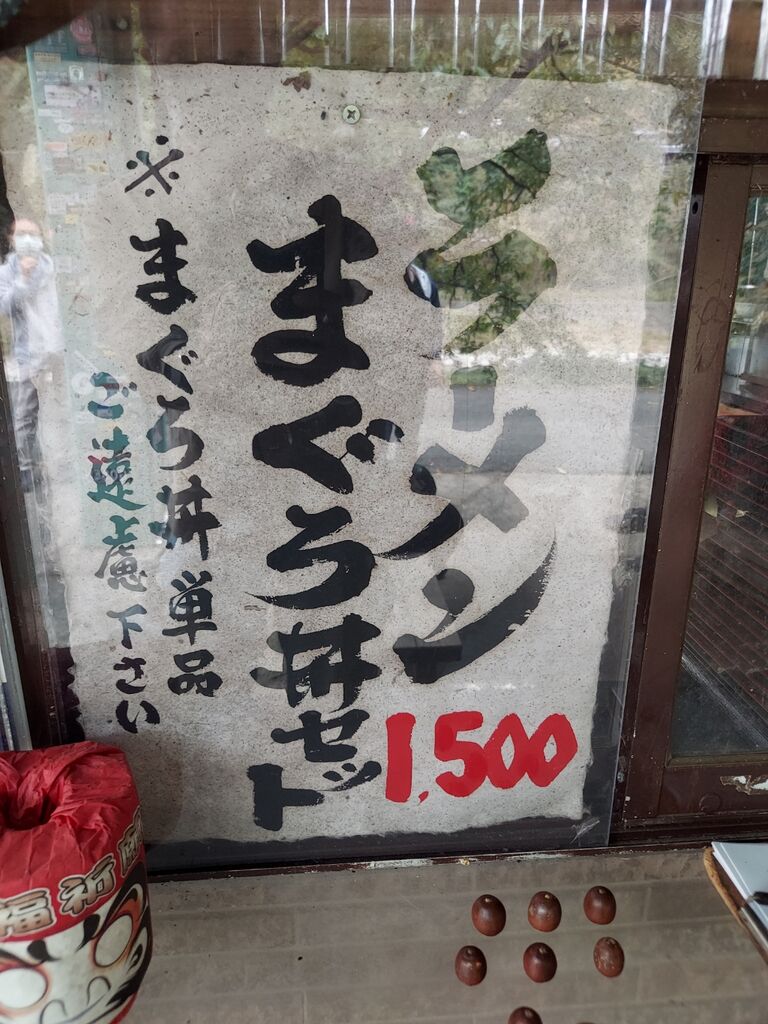 ラーメン
まぐろ丼セット
1,500
※まぐろ丼単品
ご遠慮下さい
福祈願